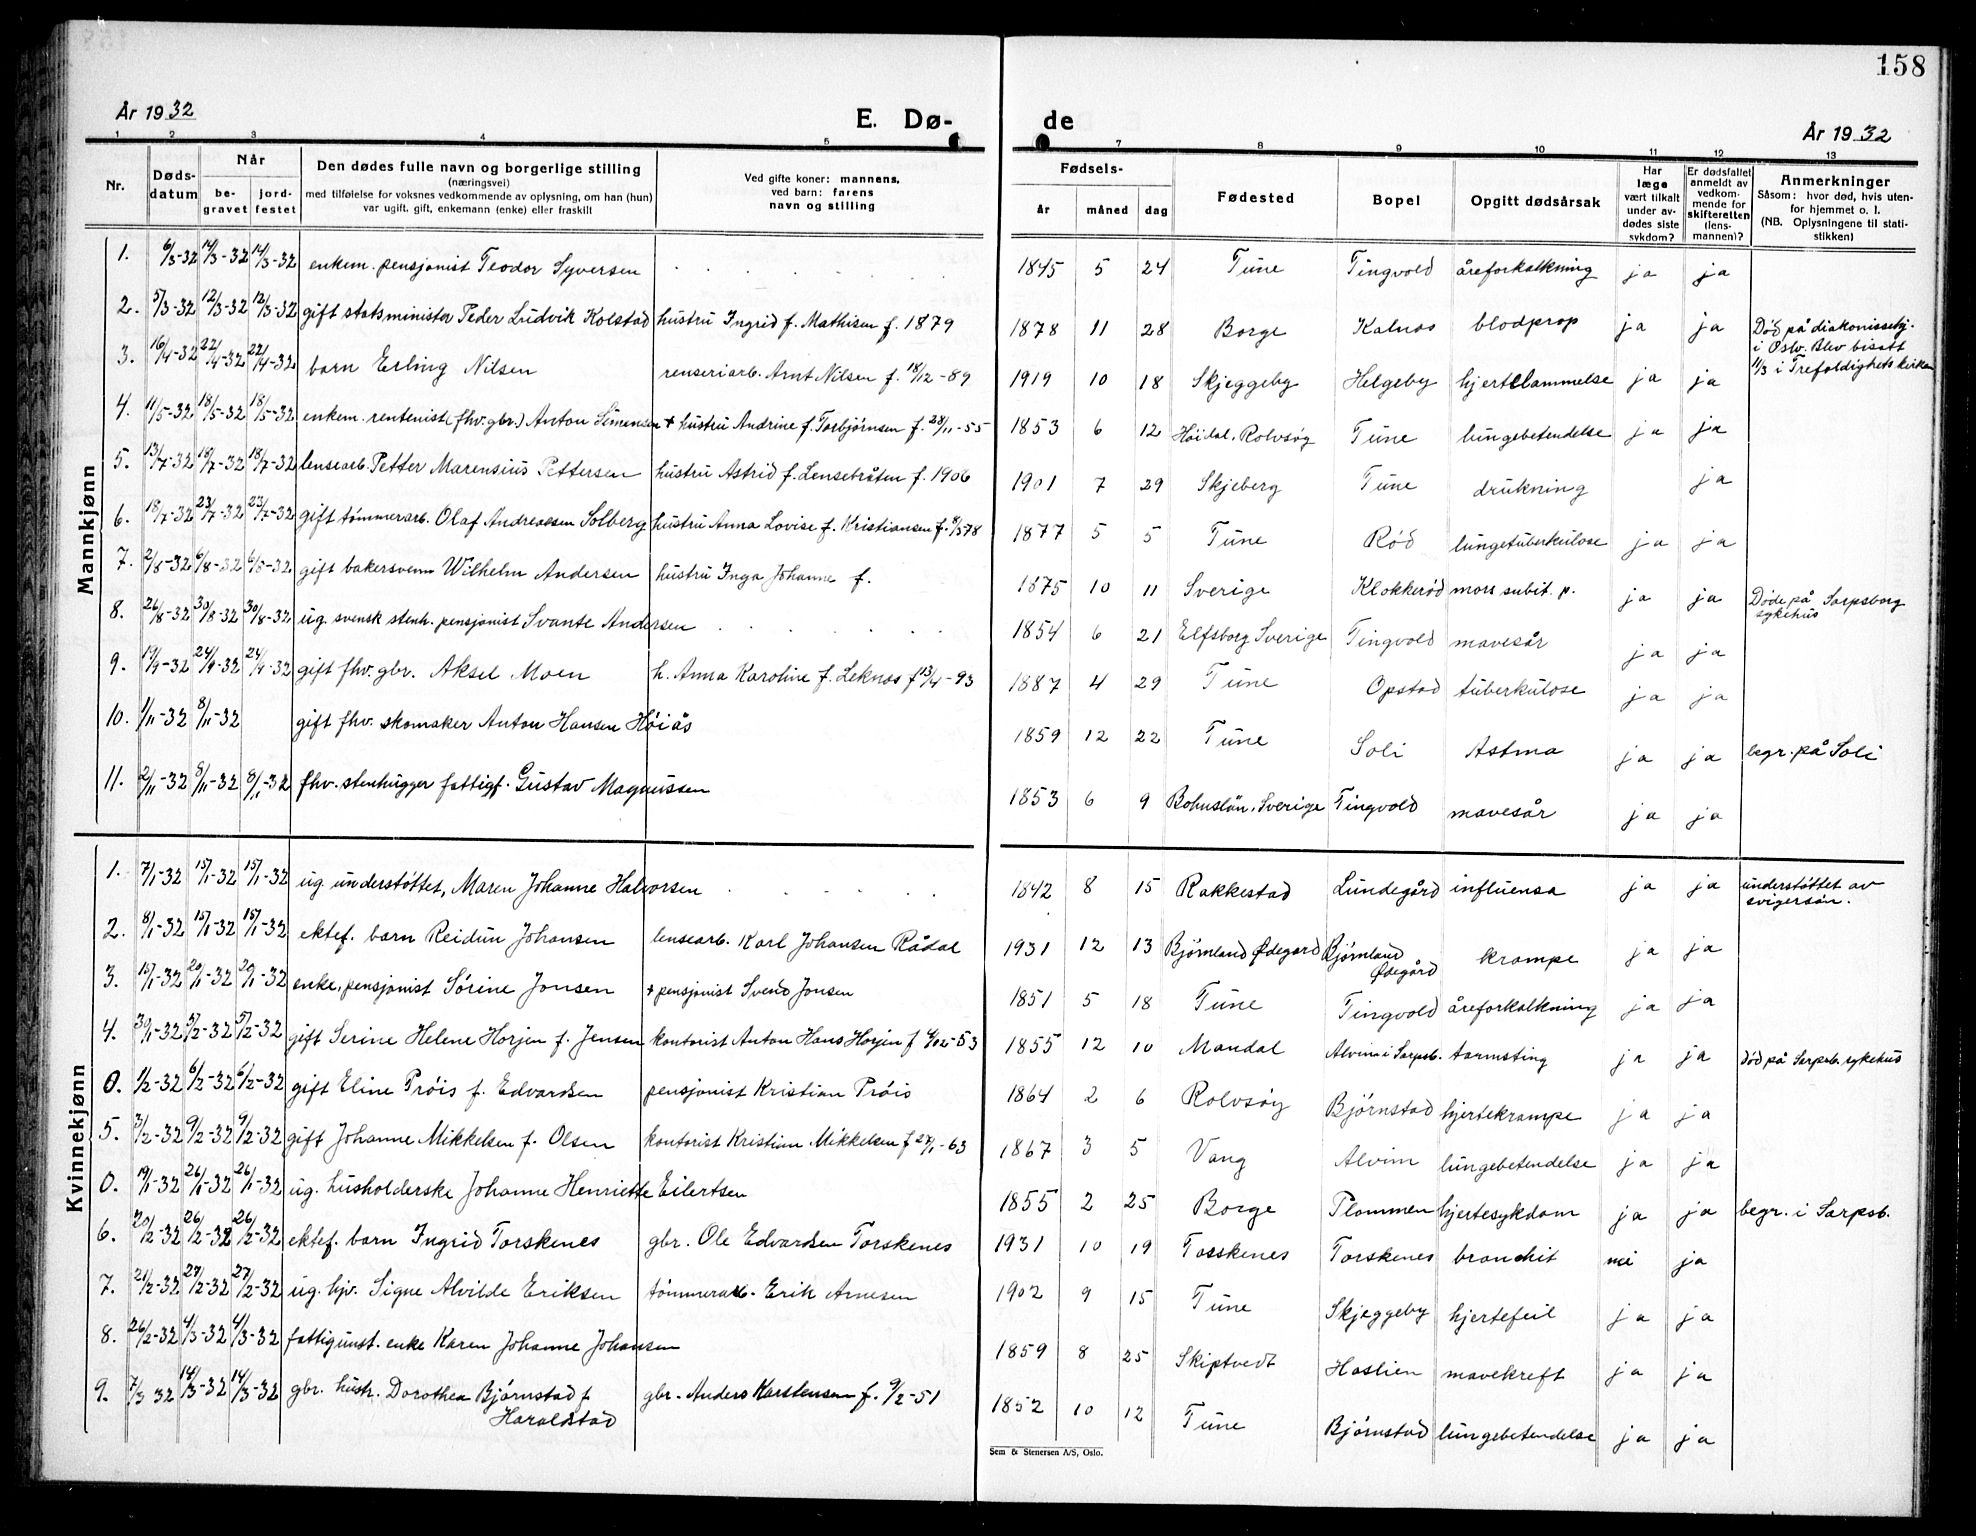 158
År 1932
E. Dø-
de
År 1932
1 2 3 4 5 7 8 9 10 11 12 13
Nr.
Døds-
datum
Når
be-
gravet
jord-
festet
Den dødes fulle navn og borgerlige stilling
(næringsvei)
med tilføielse for voksnes vedkommende av oplysning, om han (hun)
var ugift, gift, enkemann (enke) eller fraskilt
Ved gifte koner: mannens,
ved barn: farens
navn og stilling
Fødsels-
år måned dag
Fødested
Bopel
Opgitt dødsårsak
Har
læge
vært tilkalt
under av-
dødes siste
sykdom?
Er dødsfallet
anmeldt av
vedkom-
mende for
skifteretten
(lens-
mannen)?
Anmerkninger
Såsom: hvor død, hvis uten-
for hjemmet o. l.
(NB. Oplysningene til stati-
stikken)
Mannkjønn
1. 6/3-32 14/3-32 14/3-32 enkem. pensjonist Teodor Syversen 1845 5 24 Tune Tingvold åreforkalkning ja ja
2. 5/3-32 12/3-32 12/3-32 gift statsminister Peder Ludvik Kolstad hustru Ingrid f. Mathisen f. 1879 1878 11 28 Borge Kalnes blodprop ja ja Død på diakonissehj.
i Oslo. Blev bisatt
11/3 i Trefoldighetskirken
3. 16/4-32 22/4-32 22/4-32 barn Erling Nilsen renseriarb. Arnt Nilsen f. 18/12-89 1919 10 18 Skjeggeby Helgeby hjertelammelse ja ja
4. 11/5-32 18/5-32 18/5-32 enkem. rentenist (fhv. gbr.) Anton Simensen + hustru Andrine f. Torbjørnsen f. 28/11-55 1853 6 12 Høidal, Rolvsøy Tune lungebetendelse ja ja
5. 13/7-32 18/7-32 18/7-32 lensearb. Petter Marensius Pettersen hustru Astrid f. Lensebråten f. 1906 1901 7 29 Skjeberg Tune drukning ja
6. 18/7-32 23/7-32 23/7-32 gift tømmerarb. Olaf Andreassen Solberg hustru Anna Lovise f. Kristiansen f. 8/5 78 1877 5 5 Tune Rød lungetuberkulose ja ja
7. 2/8-32 6/8-32 6/8-32 gift bakersvenn Wilhelm Andersen hustru Inga Johanne f. 1875 10 11 Sverige Klokkerød mors subit. p. ja ja Døde på Sarpsborg
sykehus
8. 26/8-32 30/8-32 30/8-32 ug. svensk stenh. pensjonist Svante Andersen 1854 6 21 Elfsborg Sverige Tingvold mavesår ja ja
9. 19/9-32 24/9-32 24/9-32 gift fhv. gbr. Aksel Moen h. Anna Karoline f. Leknes f 13/4-93 1887 4 29 Tune Opstad tuberkulose ja ja
10. 1/11-32 8/11-32 gift fhv. skomaker Anton Hansen Høiås 1859 12 22 Tune Soli Astma ja ja begr. på Soli
11. 2/11-32 8/11-32 8/11-32 fhv. stenhugger fattigf. Gustav Magnussen 1853 6 9 Bohuslän, Sverige Tingvold mavesår ja ja
Kvinnekjønn
1. 7/1-32 15/1-32 15/1-32 ug. understøttet, Maren Johanne Halvorsen 1842 8 15 Rakkestad Lundegård influensa ja ja understøttet av
svigersøn.
2. 8/1-32 15/1-32 15/1-32 ektef. barn Reidun Johansen lensearb. Karl Johansen Rådal 1931 12 13 Bjørnland Ødegård Bjørnland
Ødegård krampe ja ja
3. 15/1-32 20/1-32 20/1-32 enke, pensjonist Sørine Jonsen + pensjonist Svend Jonsen 1851 5 18 Tune Tingvold åreforkalkning ja ja
4. 30/1-32 5/2-32 5/2-32 gift Serine Helene Horjen f. Jensen kontorist Anton Hans Horjen f 4/02-53 1855 12 10 Mandal Alvim i Sarpsb. tarmsting ja ja død på Sarpsb. sykehus
0. 1/2-32 6/2-32 6/2-32 gift Eline Prøis f. Edvardsen pensjonist Kristian Prøis 1864 2 6 Rolvsøy Bjørnstad hjertekrampe ja ja
5. 3/2-32 9/2-32 9/2-32 gift Johanne Mikkelsen f. Olsen kontorist Kristian Mikkelsen f 27/1-63 1867 3 5 Vang Alvim lungebetendelse ja ja
0. 19/1-32 26/1-32 26/1-32 ug. husholderske Johanne Henriette Eilertsen 1855 2 25 Borge Plommen hjertesykdom ja ja begr. i Sarpsb.
6. 20/2-32 26/2-32 26/2-32 ektef. barn Ingrid Torskenes gbr. Ole Edvardsen Torskenes 1931 10 19 Torskenes Torskenes bronchit nei ja
7. 21/2-32 27/2-32 27/2-32 ug. hjv. Signe Alvilde Eriksen tømmerarb. Erik Arnesen 1902 9 15 Tune Skjeggeby hjertefeil ja ja
8. 26/2-32 4/3-32 4/3-32 fattigunst. enke Karen Johanne Johansen 1859 8 25 Skiptvedt Haslien mavekreft ja ja
9. 7/3 32 14/3-32 14/3-32 gbr. hustr. Dorothea Bjørnstad f.
Haraldstad gbr. Anders Karstensen f. 9/2-51 1852 10 12 Tune Bjørnstad lungebetendelse ja ja
Sem & Stenersen A/S, Oslo.